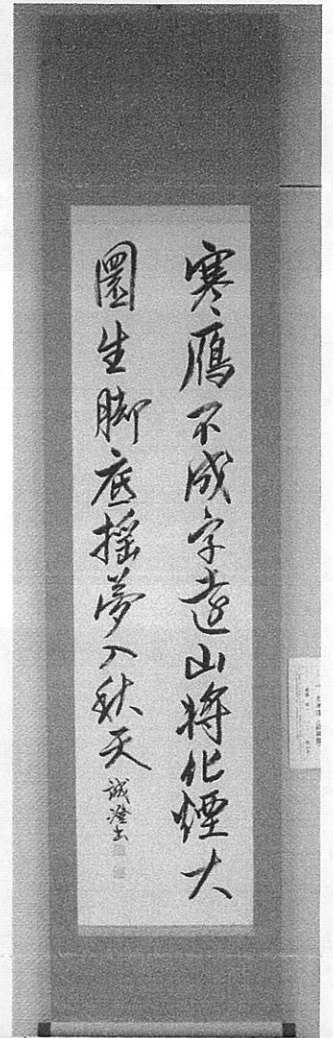 寒雁不成字遠山將化煙大
圜生脚底搖夢入秋天
誠澄書